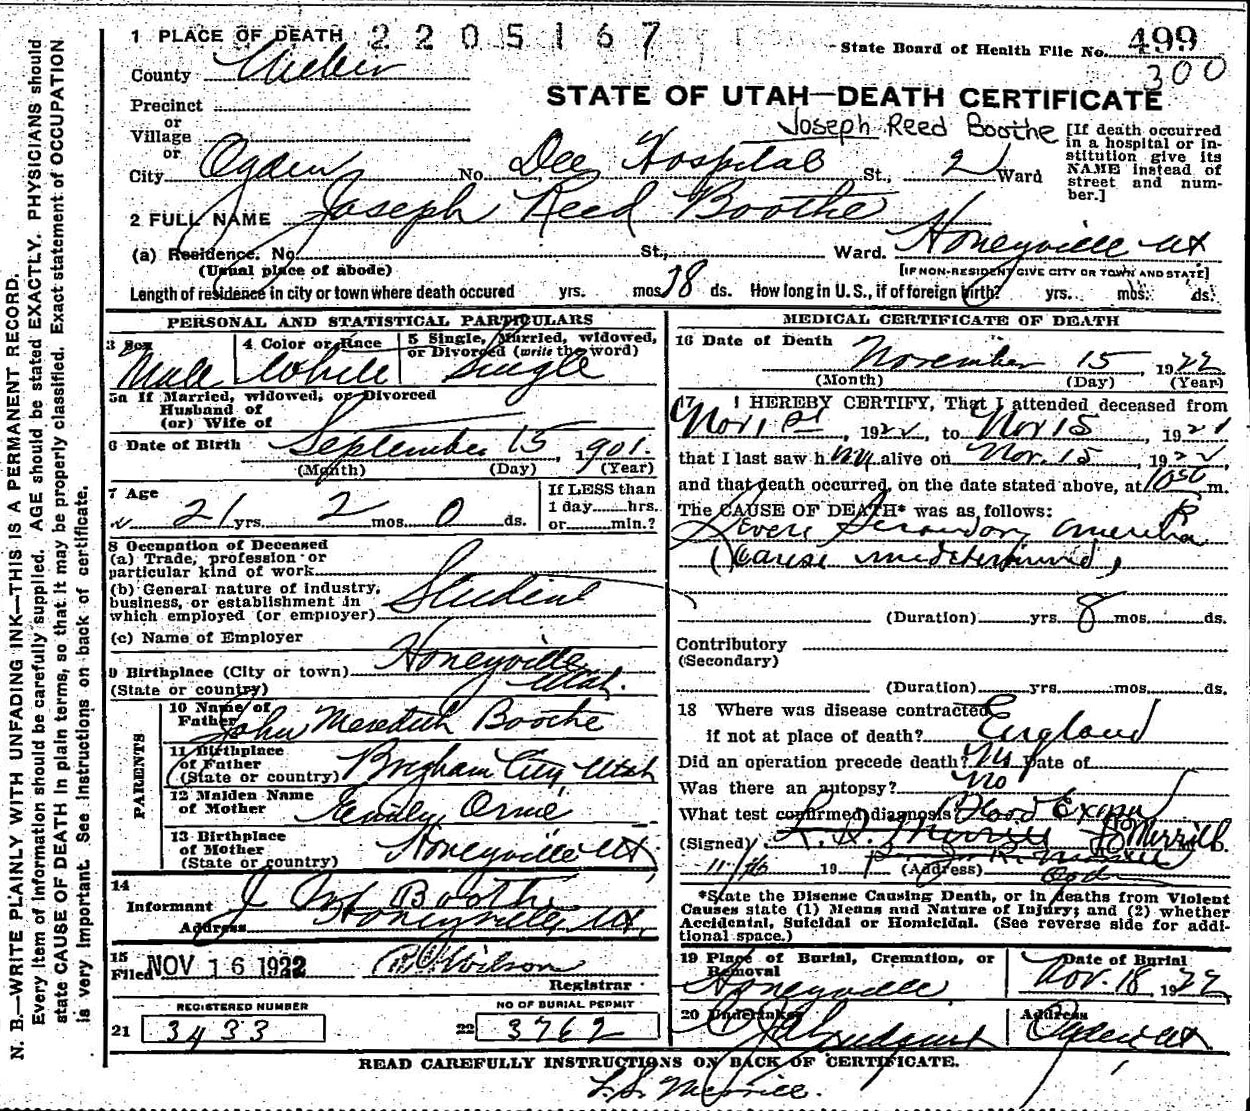 1 PLACE OF DEATH 2205167
State Board of Health File No. 499
300
County Weber
STATE OF UTAH—DEATH CERTIFICATE
Joseph Reed Boothe
Precinct
or
Village
or
City Ogden No. Dee Hospital St., 2 Ward
[If death occurred in a hospital or institution give its NAME instead of street and number.]
2 FULL NAME Joseph Reed Boothe
(a) Residence. No. St., Ward. Honeyville Ut
(Usual place of abode) [IF NON-RESIDENT GIVE CITY OR TOWN AND STATE]
Length of residence in city or town where death occured yrs. mos. 18 ds. How long in U.S., if of foreign birth? yrs. mos. ds.
PERSONAL AND STATISTICAL PARTICULARS
3 Sex Male
4 Color or Race White
5 Single, Married, widowed, or Divorced (write the word) Single
5a If Married, widowed, or Divorced
Husband of
(or) Wife of
6 Date of Birth September 15, 1901.
(Month) (Day) (Year)
7 Age 21 yrs. 2 mos. 0 ds.
If LESS than
1 day hrs.
or min.?
8 Occupation of Deceased
(a) Trade, profession or
particular kind of work
(b) General nature of industry,
business, or establishment in
which employed (or employer) Student
(c) Name of Employer
9 Birthplace (City or town) Honeyville
(State or country) Utah.
PARENTS
10 Name of Father John Meredith Boothe
11 Birthplace of Father (State or country) Brigham City Utah
12 Maiden Name of Mother Emily Orme
13 Birthplace of Mother (State or country) Honeyville Ut
14 Informant J M Boothe
Address Honeyville Ut.
15 Filed NOV 16 1922 Wilson
Registrar
REGISTERED NUMBER NO OF BURIAL PERMIT
21 3433 22 3762
MEDICAL CERTIFICATE OF DEATH
16 Date of Death November 15, 1922
(Month) (Day) (Year)
17 I HEREBY CERTIFY, That I attended deceased from
Nov 1st, 1922, to Nov 15, 192
that I last saw him alive on Nov. 15, 1922,
and that death occurred, on the date stated above, at 1050 P m.
The CAUSE OF DEATH* was as follows:
Severe Secondary anemia
(Cause undetermined)
(Duration) yrs. 8 mos. ds.
Contributory
(Secondary)
(Duration) yrs. mos. ds.
18 Where was disease contracted
if not at place of death? England
Did an operation precede death? No Date of
Was there an autopsy? No
What test confirmed diagnosis Blood Exam
(Signed) Merrill
11/16 19 (Address)
*State the Disease Causing Death, or in deaths from Violent
Causes state (1) Means and Nature of Injury; and (2) whether
Accidental, Suicidal or Homicidal. (See reverse side for additional space.)
19 Place of Burial, Cremation, or Removal Honeyville
Date of Burial Nov. 18, 1922
20 Undertaker
Address Ogden Ut
READ CAREFULLY INSTRUCTIONS ON BACK OF CERTIFICATE.
L.S. Merrill.
N. B.—WRITE PLAINLY WITH UNFADING INK—THIS IS A PERMANENT RECORD.
Every item of information should be carefully supplied. AGE should be stated EXACTLY. PHYSICIANS should
state CAUSE OF DEATH in plain terms, so that it may be properly classified. Exact statement of OCCUPATION
is very important. See instructions on back of certificate.